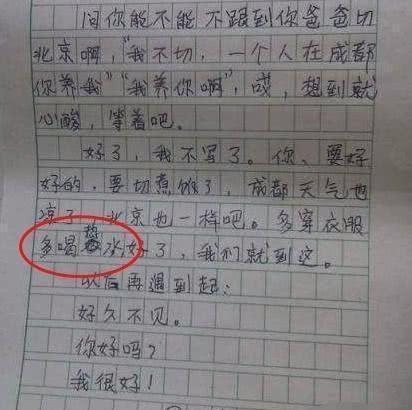 问你能不能不跟到你爸爸切
北京啊，“我不切，一个人在成都
你养我”“我养你啊”，哎，想到就
心酸，等着吧。
好了，我不写了。你、要好
好的，要切煮饭了，成都天气也
凉了，北京也一样吧。多穿衣服
多喝热水好了，我们就到这。
以后再遇到起：
好久不见。
你好吗？
我很好！